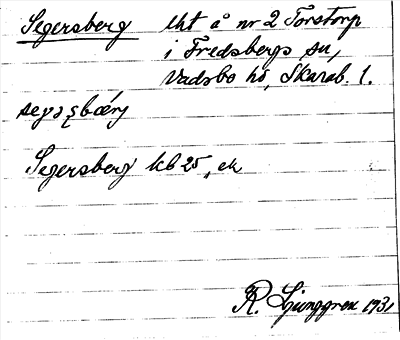 Segersberg lht å nr 2 Torstorp
i Fredsbergs sn,
Vadsbo hd, Skarab. l.
segǝṣbærj
Segersberg kb 25, ek
R. Ljunggren 1931